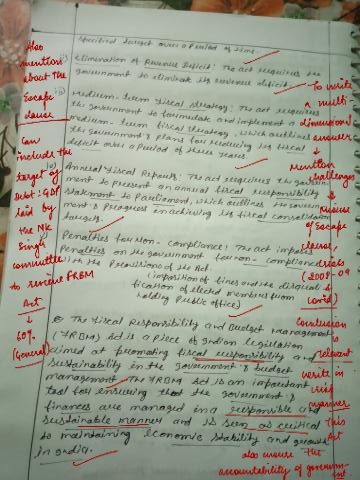 specified target over a period of time.
Elimination of Revenue Deficit: The act requires the
government to eliminate its revenue deficit.
Medium-term Fiscal Strategy: The act requires
the government to formulate and implement a
medium-term fiscal strategy, which outlines
the government's plans for reducing its fiscal
deficit over a period of three years.
Annual Fiscal Reports: The act requires the govern-
ment to present an annual fiscal responsibility
statement to Parliament, which outlines the govern-
ment's progress in achieving its fiscal consolidation
targets.
Penalties for non-compliance: The act imposes
Penalties on the government for non-compliance
with the provisions of the Act.
(imposition of fines and the disquali-
fication of elected members from
holding Public office)
The Fiscal Responsibility and Budget Management
(FRBM) Act is a piece of Indian legislation
aimed at promoting fiscal responsibility and
sustainability in the government's budget
management. The FRBM Act is an important
tool for ensuring that the government's
finances are managed in a responsible and
sustainable manner and is seen as critical
to maintaining economic stability and growth
in India.
Also
mention
about the
Escape
clause
Can
include the
target of
Debt: GDP
laid by
the NK
Singh
committee
to review FRBM
Act
60%
(General)
To write
a multi
dimensional
answer
Mention
challenges
Misuse
of Escape
clause,
(2008-09
Conclusion is
relevant
write in
crisp
manner.
this
Act
also ensure the
accountability of governm-
ent